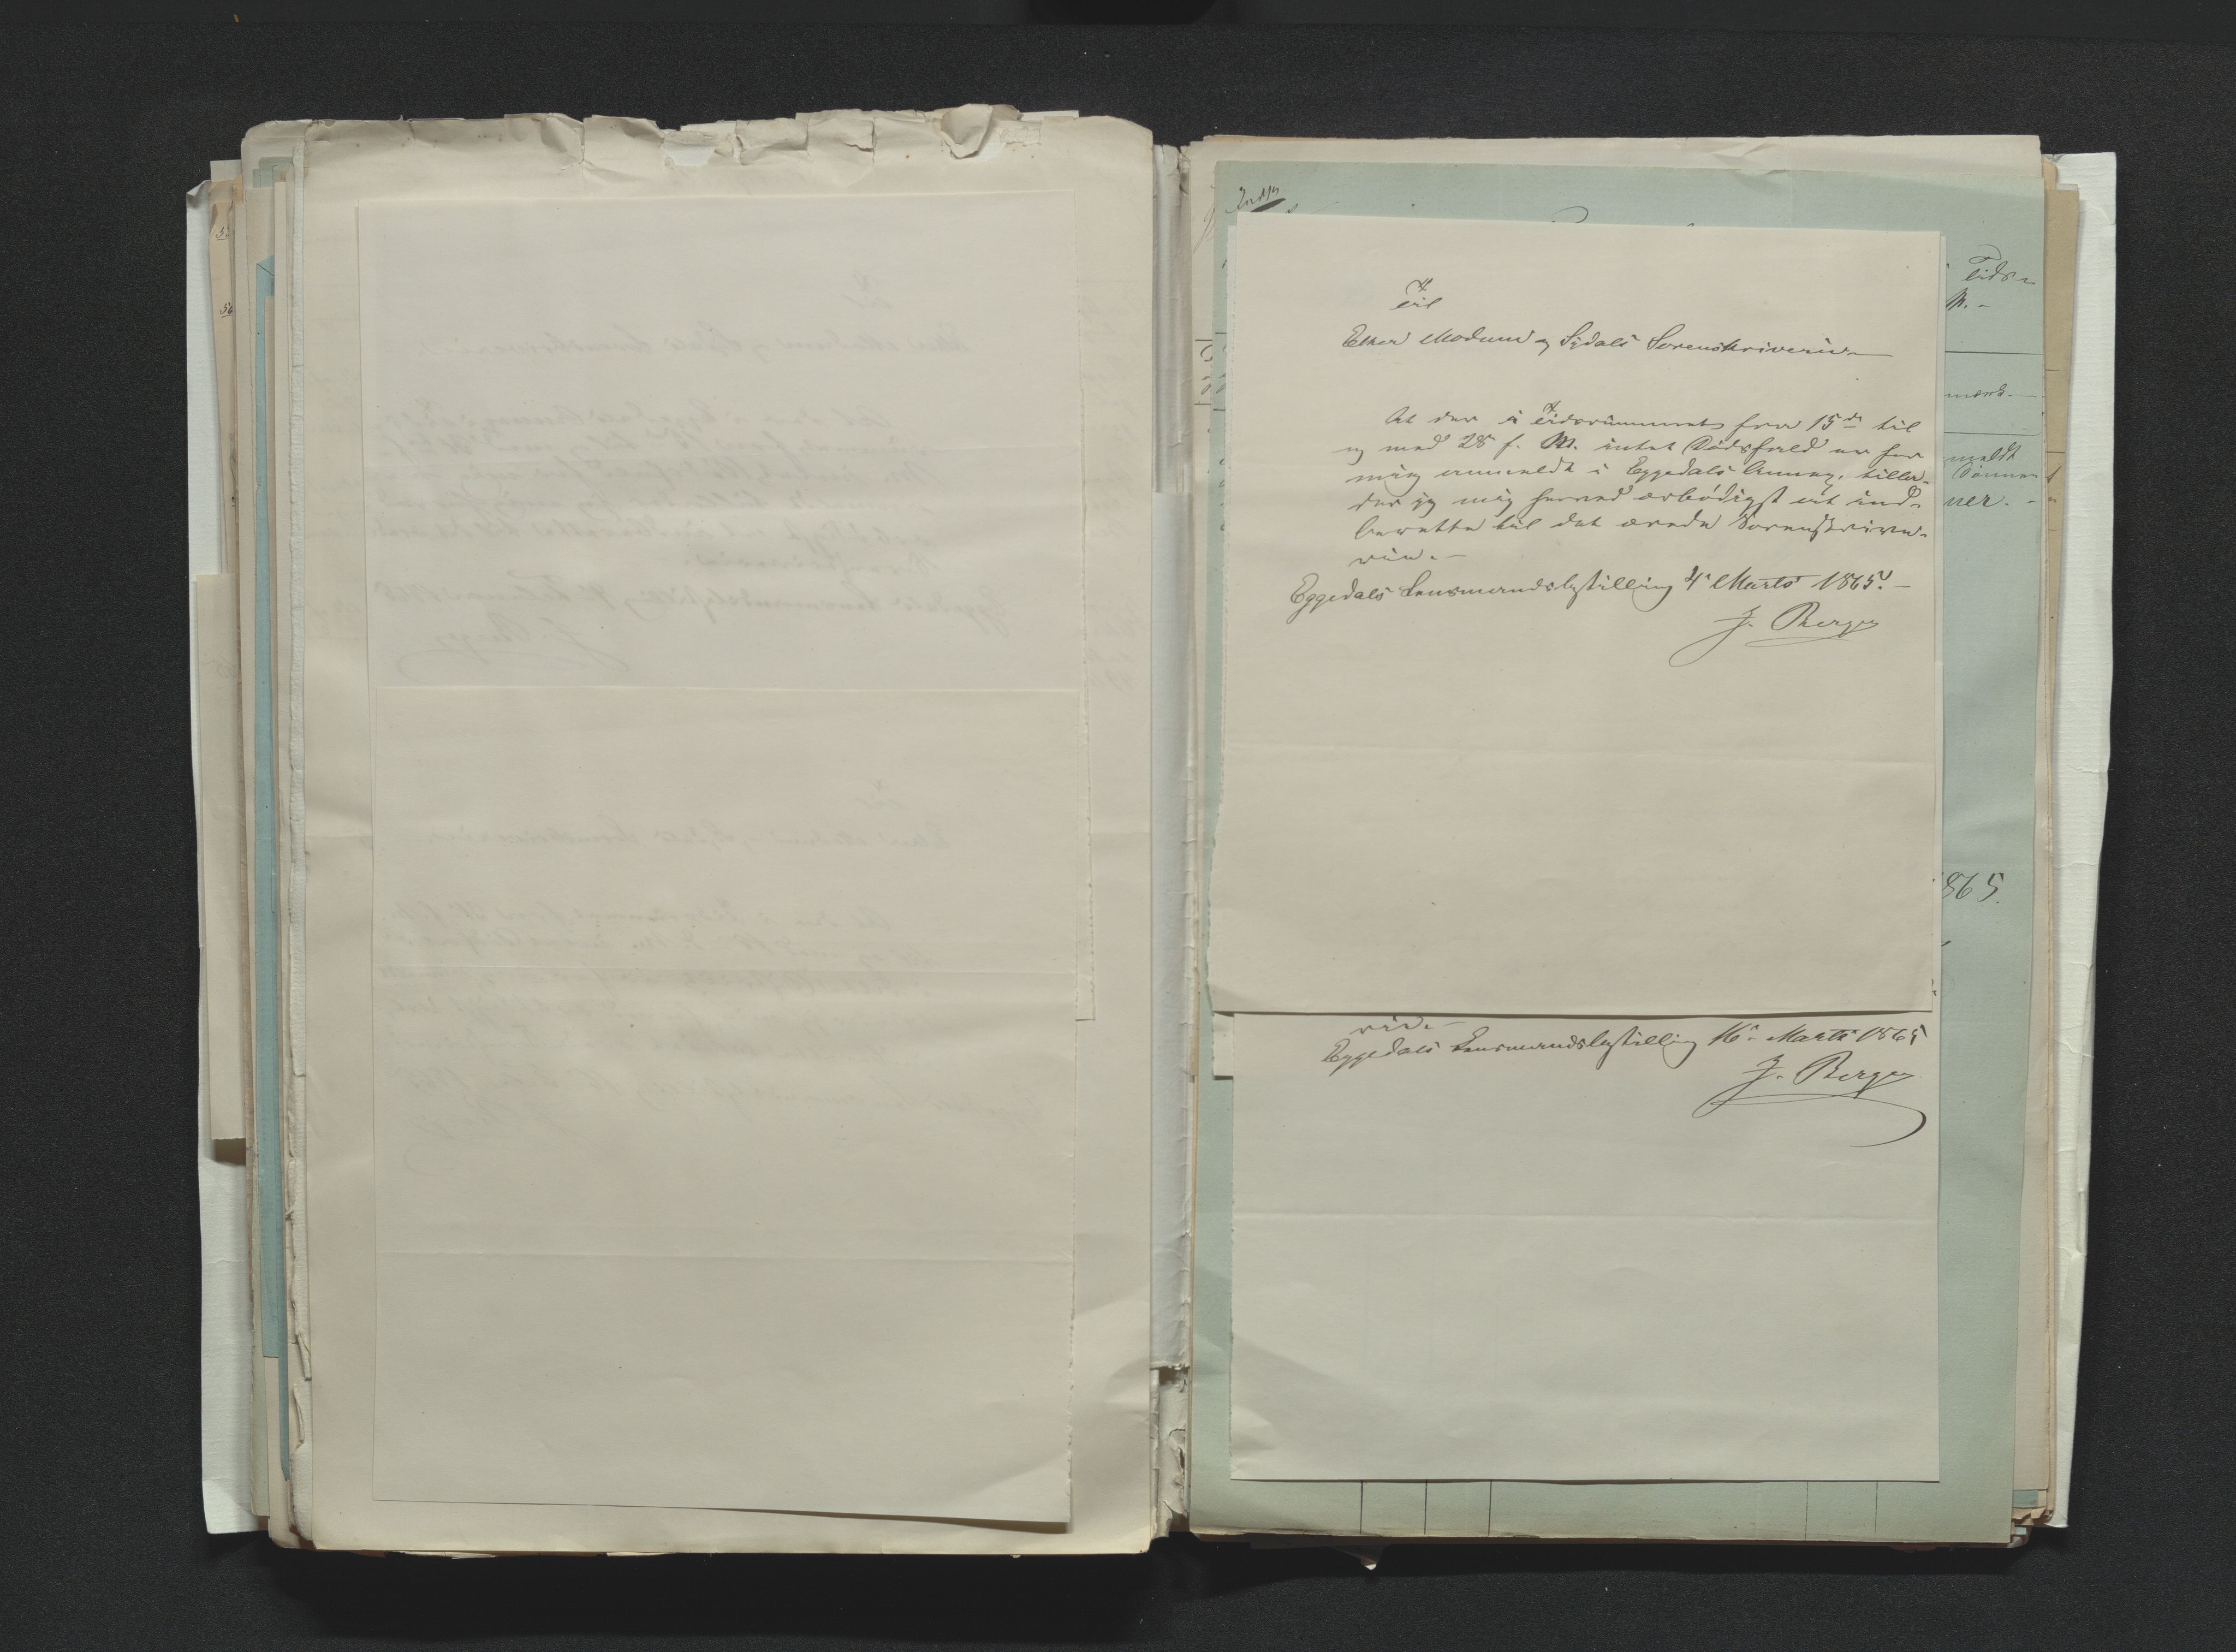 Til
Eker Modum og Sigdals Sorenskriveri
At der i Tidsrummet fra 15de til
og med 28 f. M. intet Dødsfald er for
mig anmeldt i Eggedals Annex, tilla-
der jeg mig herved ærbødigst at ind-
berette til det ærede Sorenskrive-
rie.-
Eggedals Lensmandsbestilling 4 Marts 1865.-
J. Berger
rie.-
Eggedals Lensmandsbestilling 16 Marts 1865
J. Berger
Tids-
M.-
mærk.-
meldt
ner.-
865.